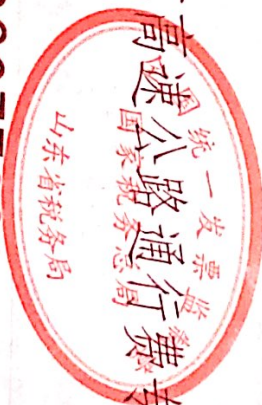 高速公路通行费
国统一发票监
国家税务总局
山东省税务局